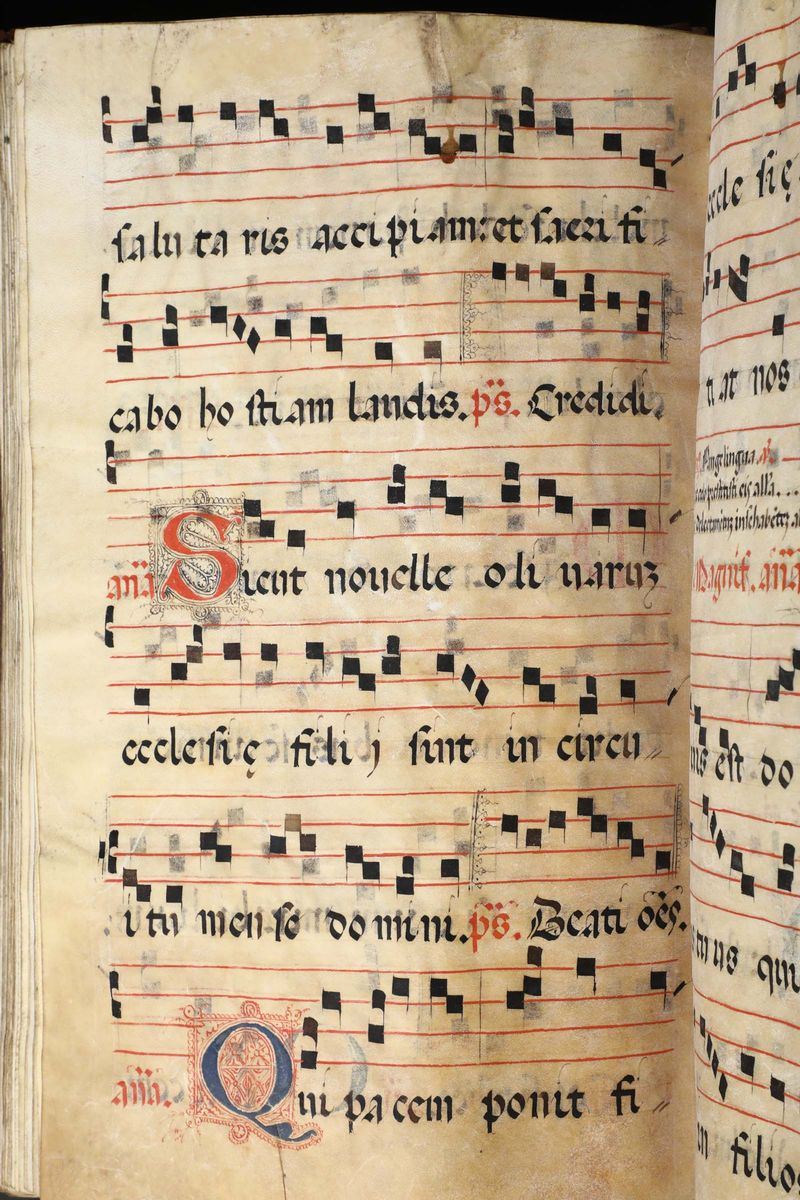 salu ta ris accipiam: et sacri fi
cabo ho stiam laudis. ps. Credidi.
ana Sicut nouelle oli uaruz
ecclesię filij sint in circu
itu mense domini. ps. Beati oẽs.
ana. Qui pacem ponit fi
eccle się
ti at nos
Pange lingua
Magnif. ana
est do
qui
filios